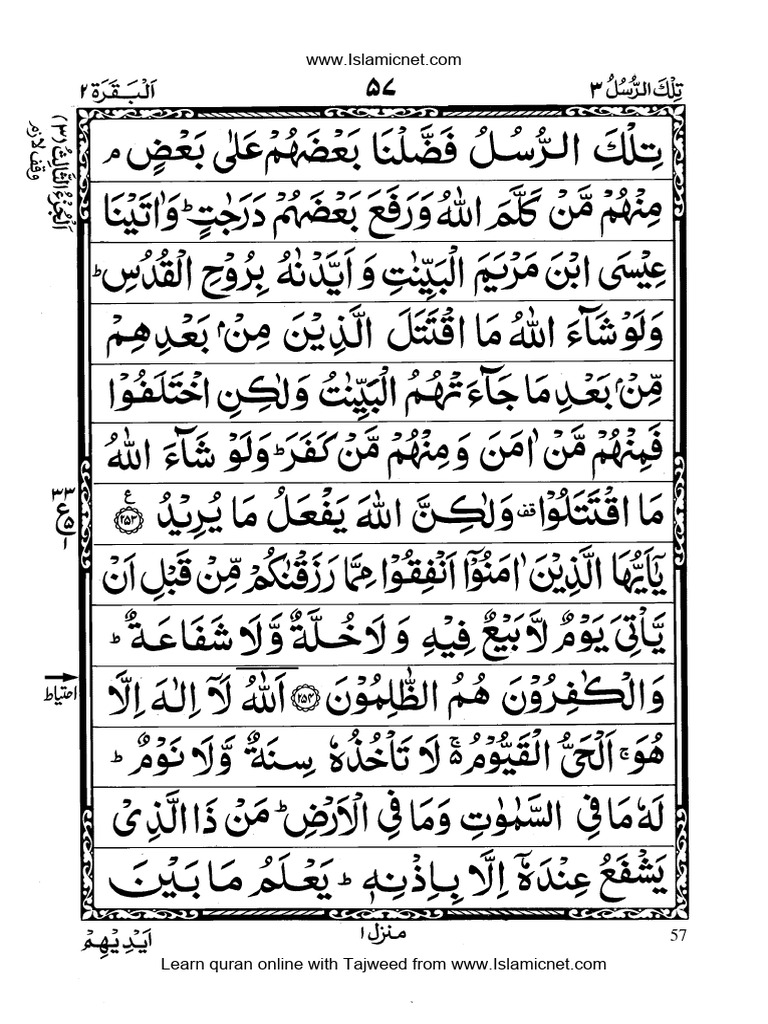 www.Islamicnet.com
تِلْكَ الرُّسُلُ ٣
۵۷
اَلْبَقَرَة ٢
اَلْجُزْءُ الثَّالِثُ (٣)
وقف لازم
تِلْكَ الرُّسُلُ فَضَّلْنَا بَعْضَهُمْ عَلٰى بَعْضٍ ۘ
مِنْهُمْ مَّنْ كَلَّمَ اللّٰهُ وَرَفَعَ بَعْضَهُمْ دَرَجٰتٍ ؕ وَاٰتَيْنَا
عِيْسَى ابْنَ مَرْيَمَ الْبَيِّنٰتِ وَاَيَّدْنٰهُ بِرُوْحِ الْقُدُسِ ؕ
وَلَوْ شَآءَ اللّٰهُ مَا اقْتَتَلَ الَّذِيْنَ مِنْۢ بَعْدِهِمْ
مِّنْۢ بَعْدِ مَا جَآءَتْهُمُ الْبَيِّنٰتُ وَلٰكِنِ اخْتَلَفُوْا
فَمِنْهُمْ مَّنْ اٰمَنَ وَمِنْهُمْ مَّنْ كَفَرَ ؕ وَلَوْ شَآءَ اللّٰهُ
مَا اقْتَتَلُوْا ۫ وَلٰكِنَّ اللّٰهَ يَفْعَلُ مَا يُرِيْدُ ﴿٢٥٣﴾ ع
٣٣
ع
۵
١
يٰۤاَيُّهَا الَّذِيْنَ اٰمَنُوْۤا اَنْفِقُوْا مِمَّا رَزَقْنٰكُمْ مِّنْ قَبْلِ اَنْ
يَّاْتِيَ يَوْمٌ لَّا بَيْعٌ فِيْهِ وَلَا خُلَّةٌ وَّلَا شَفَاعَةٌ ؕ
وَالْكٰفِرُوْنَ هُمُ الظّٰلِمُوْنَ ﴿٢٥٤﴾ اَللّٰهُ لَاۤ اِلٰهَ اِلَّا
احتیاط
هُوَ ۚ اَلْحَيُّ الْقَيُّوْمُ ۚ۬ لَا تَاْخُذُهٗ سِنَةٌ وَّلَا نَوْمٌ ؕ
لَهٗ مَا فِي السَّمٰوٰتِ وَمَا فِي الْاَرْضِ ؕ مَنْ ذَا الَّذِيْ
يَشْفَعُ عِنْدَهٗۤ اِلَّا بِاِذْنِهٖ ؕ يَعْلَمُ مَا بَيْنَ
57
منزل ١
اَيْدِيْهِمْ
Learn quran online with Tajweed from www.Islamicnet.com